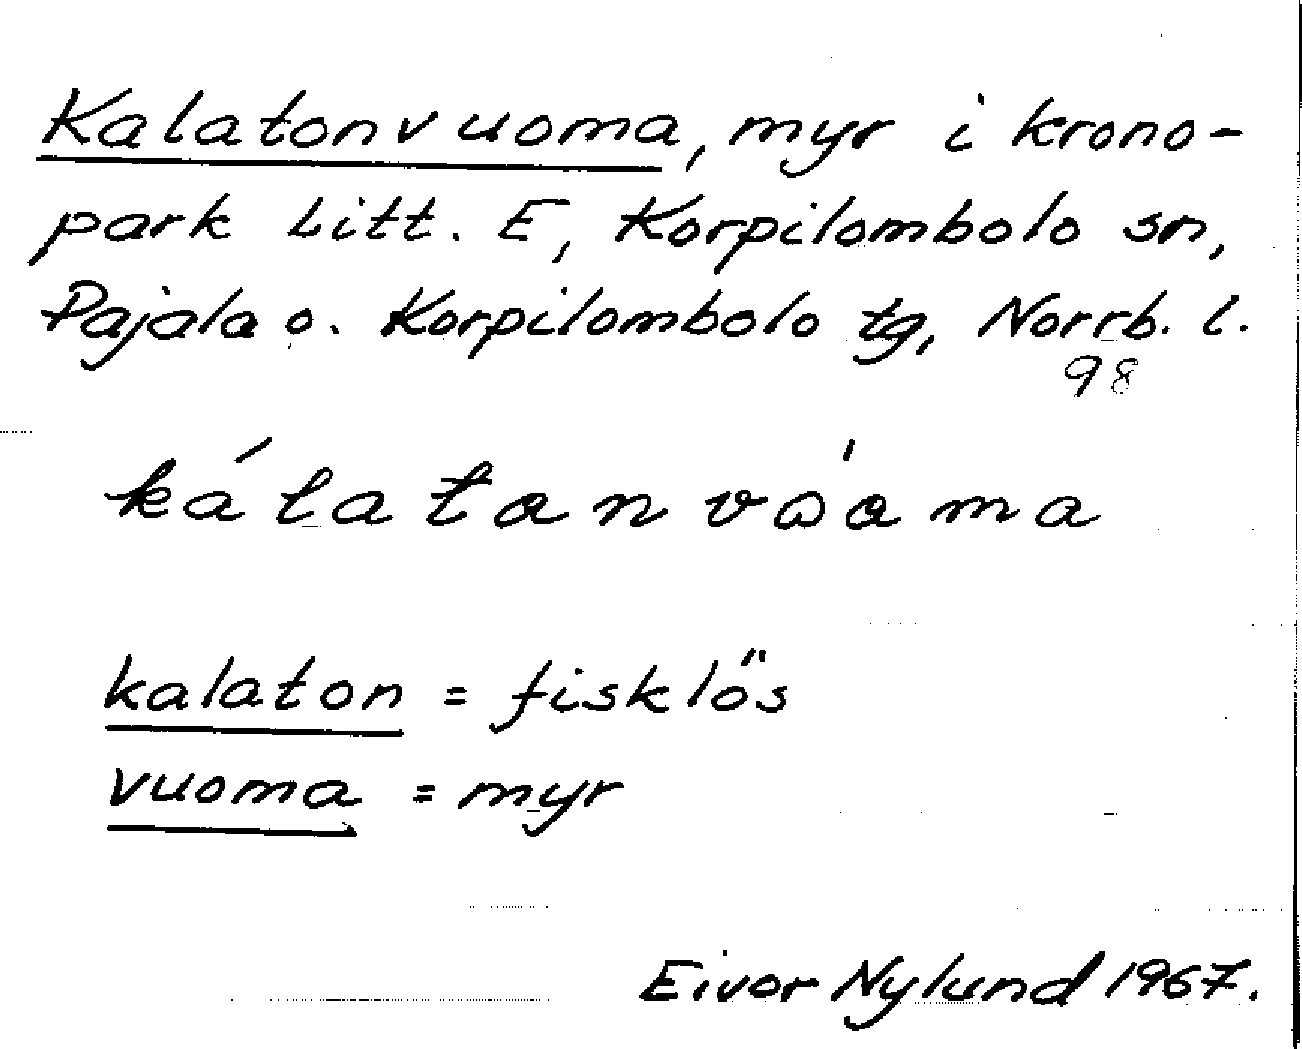 Kalatonvuoma, myr i krono-
park Litt. E, Korpilombolo sn,
Pajala o. Korpilombolo tg, Norrb. l.
98
kalaton = fisklös
vuoma = myr
Eivor Nylund 1967.